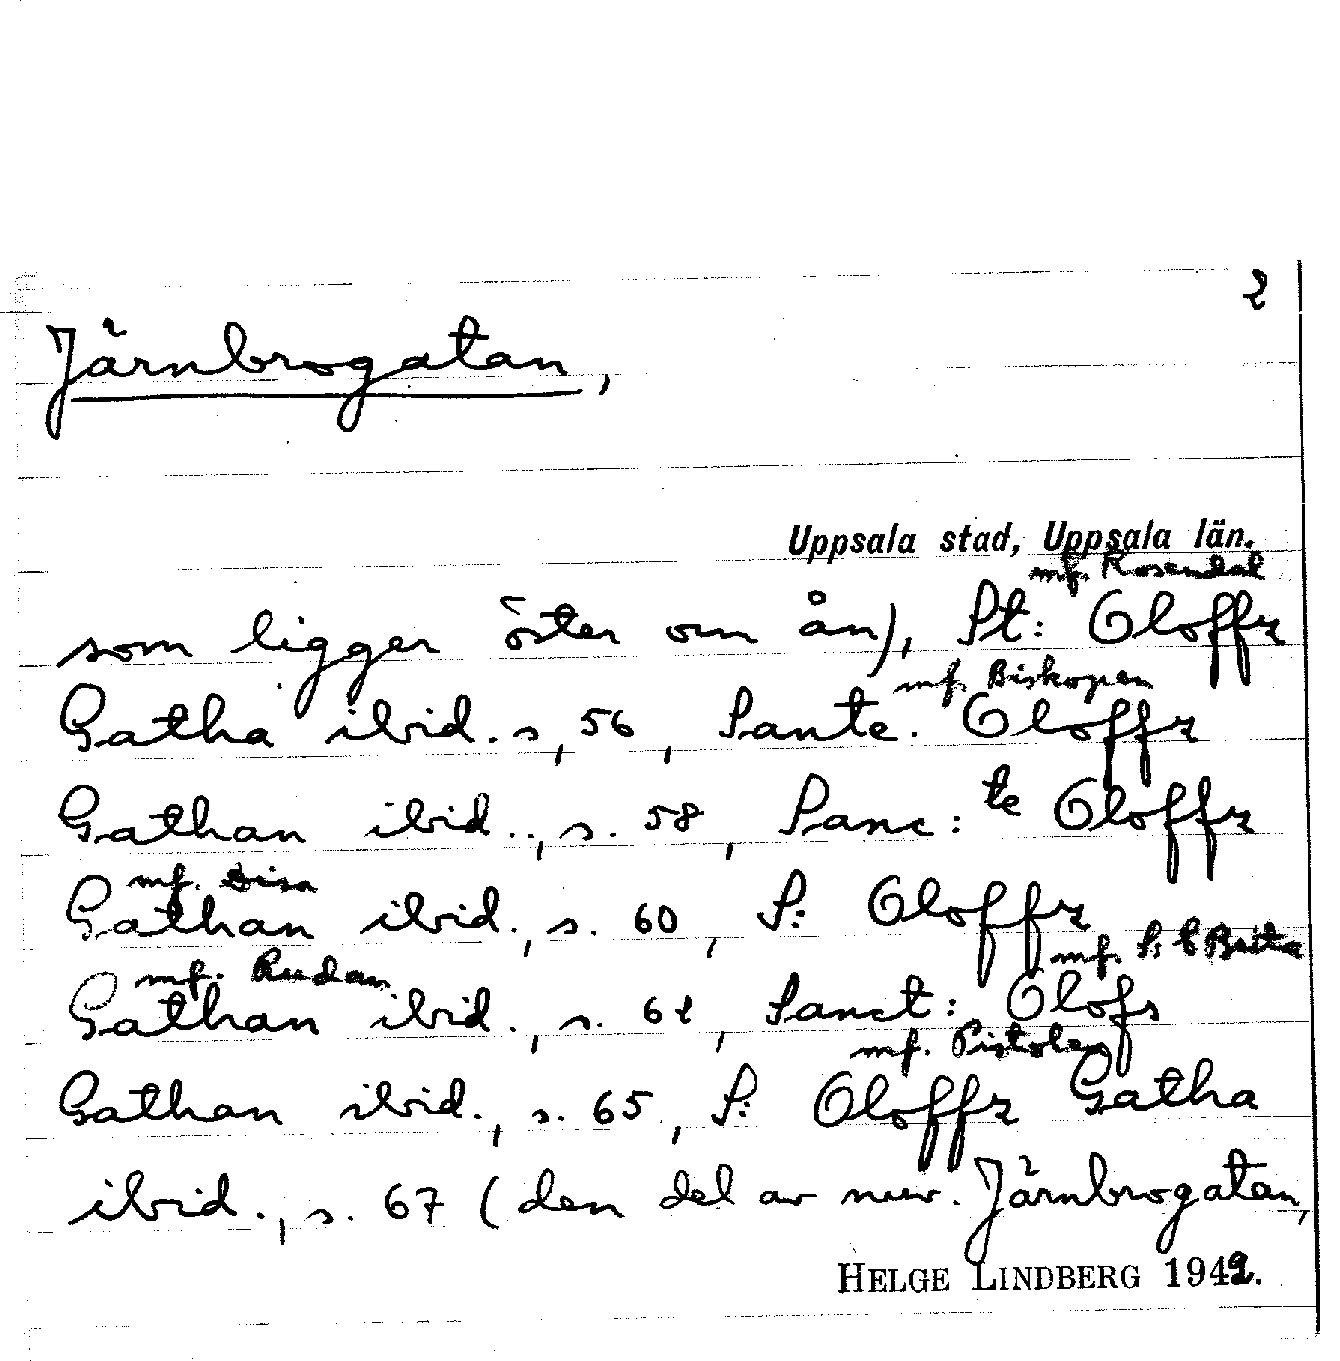 2
Järnbrogatan,
Uppsala stad, Uppsala län.
mf. Rosendal
som ligger öster om ån), St: Oloffz
mf. Biskopen
Gatha ibid. s, 56, Sante. Oloffz
Gathan ibid., s. 58, Sanc:te Oloffz
mf. Disa
Gathan ibid., s. 60, S: Oloffz
mf. Rudan mf. S:
Gathan ibid., s. 61, Sanct: Olofs
mf. Pistolen
Gathan ibid., s. 65, S: Oloffz Gatha
ibid., s. 67 (den del av nuv. Järnbrogatan,
HELGE LINDBERG 1942.